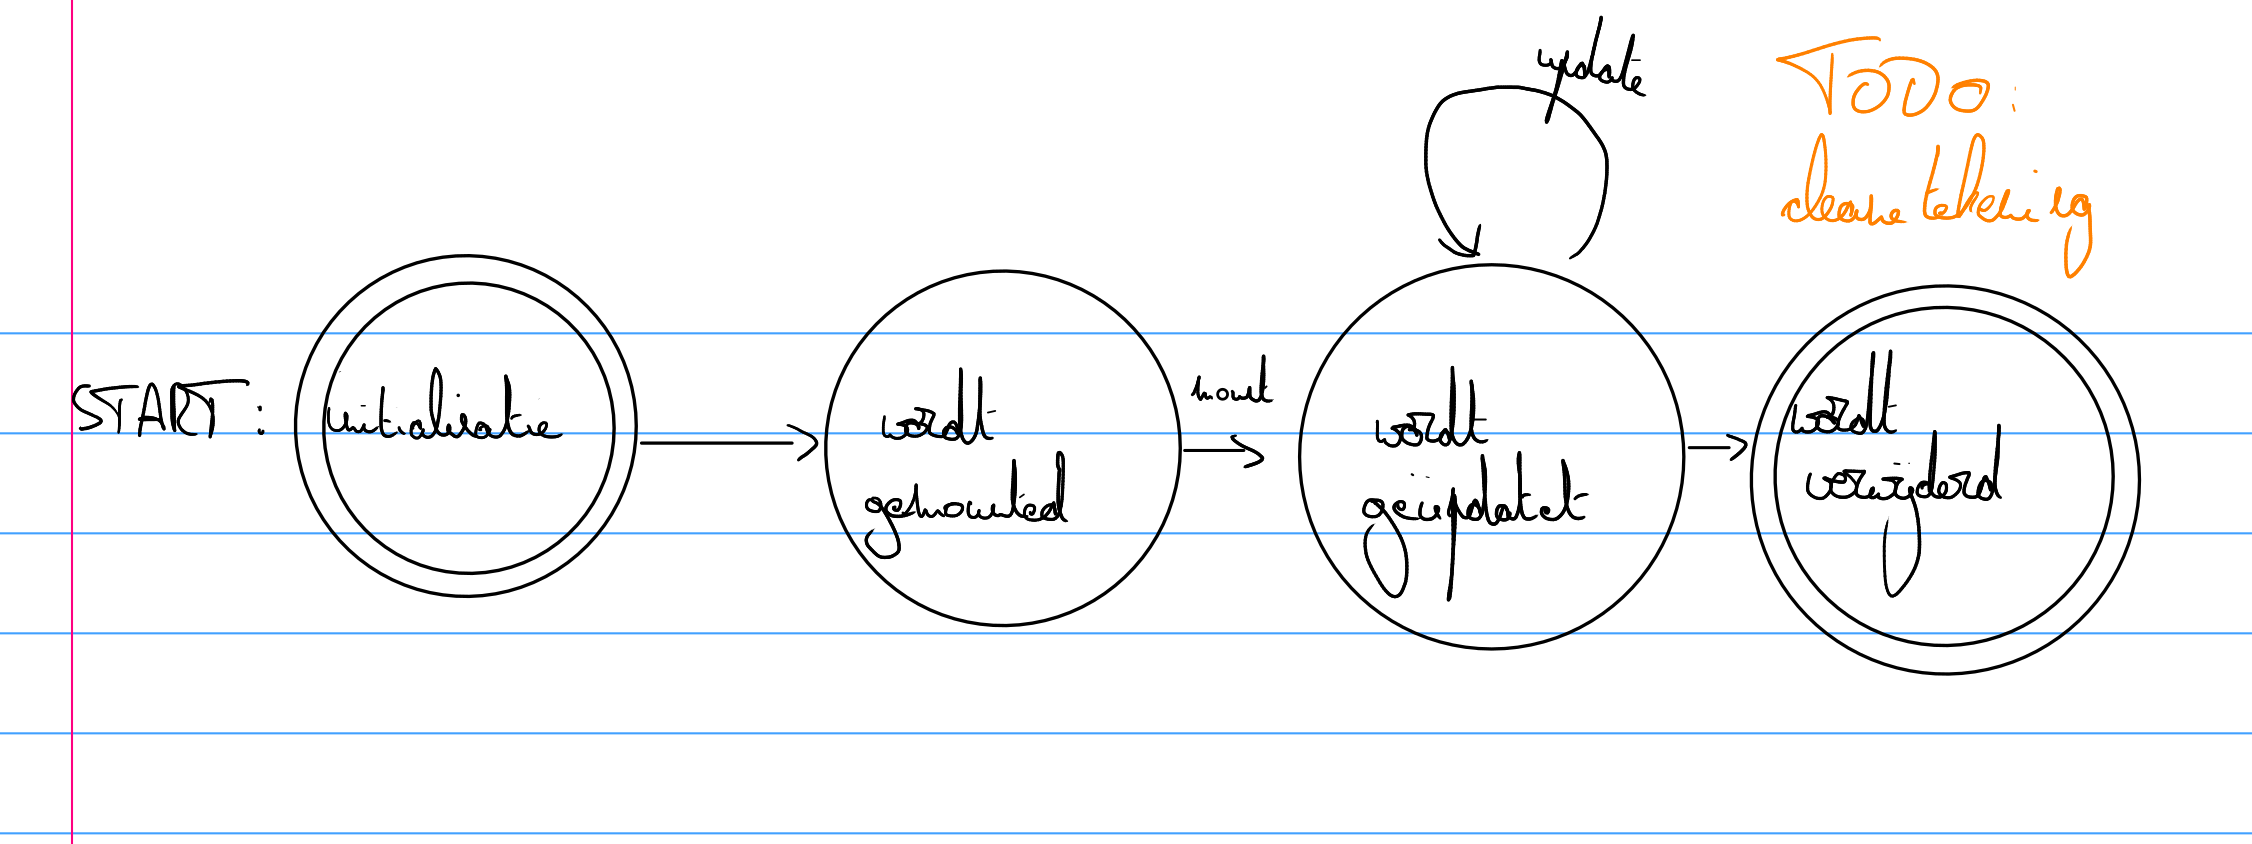 update
TODO:
cleane tekening
START:
initialisatie
wordt
gemounted
mount
wordt
geüpdatet
wordt
verwijderd